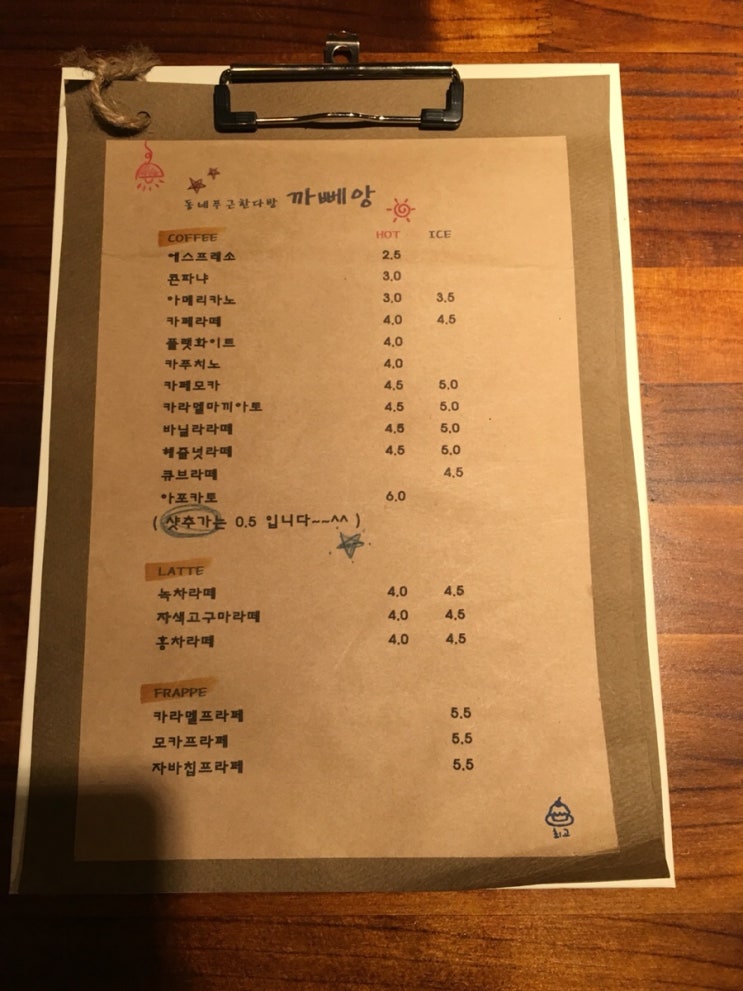 동네푸근한다방 까뻬앙
COFFEE HOT ICE
에스프레소 2.5
콘파냐 3.0
아메리카노 3.0 3.5
카페라떼 4.0 4.5
플랫화이트 4.0
카푸치노 4.0
카페모카 4.5 5.0
카라멜마끼아토 4.5 5.0
바닐라라떼 4.5 5.0
헤즐넛라떼 4.5 5.0
큐브라떼 4.5
아포카토 6.0
( 샷추가는 0.5 입니다~~^^ )
LATTE
녹차라떼 4.0 4.5
자색고구마라떼 4.0 4.5
홍차라떼 4.0 4.5
FRAPPE
카라멜프라페 5.5
모카프라페 5.5
자바칩프라페 5.5